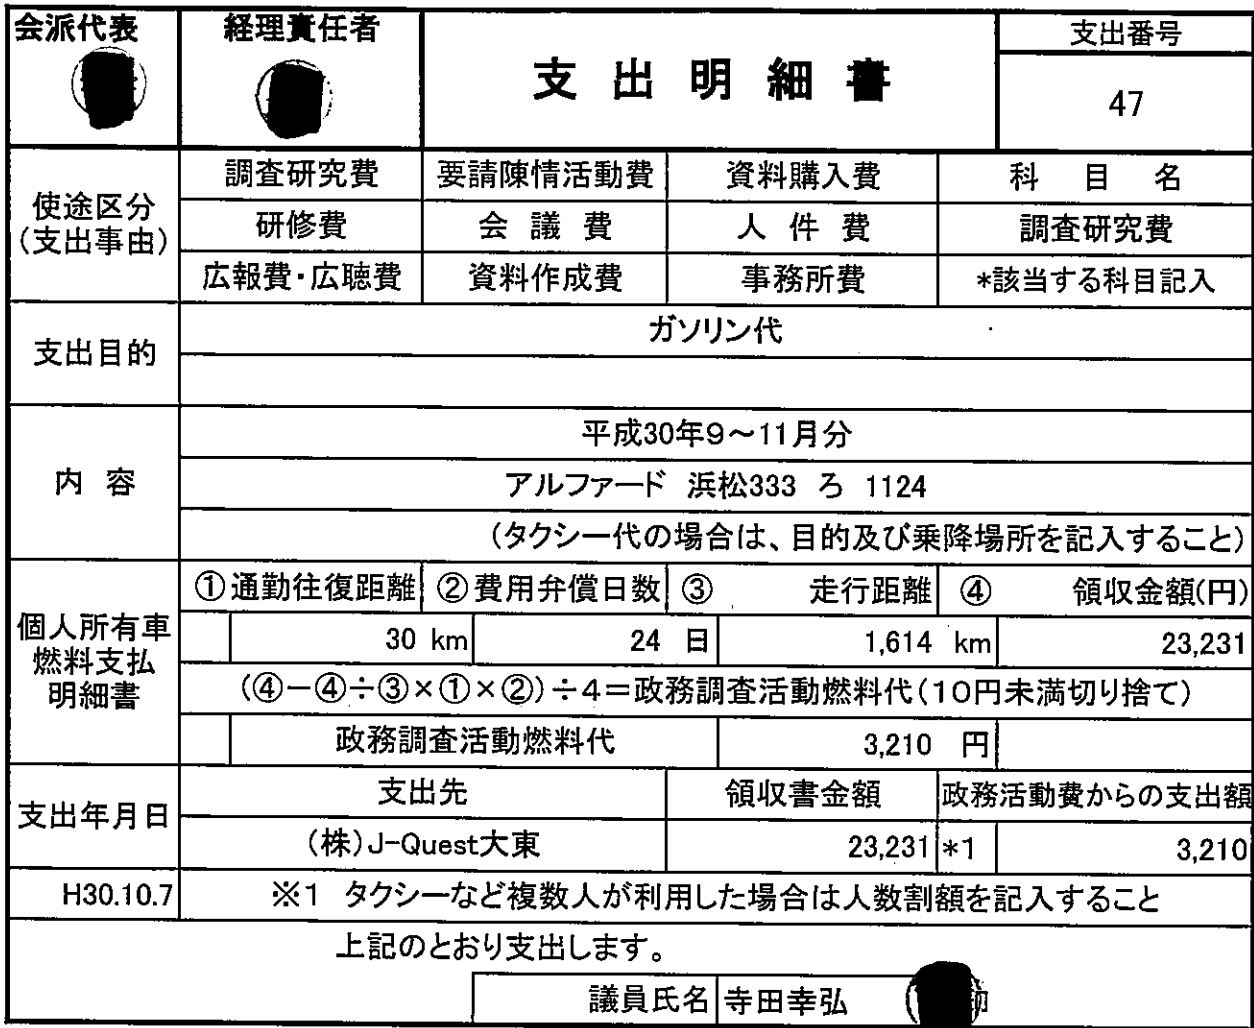 会派代表 経理責任者 支出明細書 支出番号
47
使途区分
(支出事由)
調査研究費 要請陳情活動費 資料購入費 科目名
研修費 会議費 人件費 調査研究費
広報費・広聴費 資料作成費 事務所費 *該当する科目記入
支出目的
ガソリン代
内容
平成30年9～11月分
アルファード 浜松333 ろ 1124
(タクシー代の場合は、目的及び乗降場所を記入すること)
個人所有車
燃料支払
明細書
①通勤往復距離 ②費用弁償日数 ③ 走行距離 ④ 領収金額(円)
30 km 24 日 1,614 km 23,231
(④－④÷③×①×②)÷4＝政務調査活動燃料代(10円未満切り捨て)
政務調査活動燃料代 3,210 円
支出年月日 支出先 領収書金額 政務活動費からの支出額
(株)J-Quest大東 23,231 *1 3,210
H30.10.7 ※1 タクシーなど複数人が利用した場合は人数割額を記入すること
上記のとおり支出します。
議員氏名 寺田幸弘